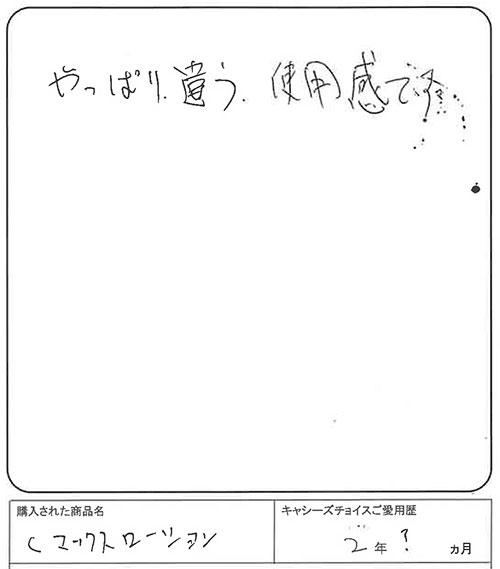 やっぱり、違う、使用感です
購入された商品名
Cマックスローション
キャシーズチョイスご愛用歴
2年?ヵ月